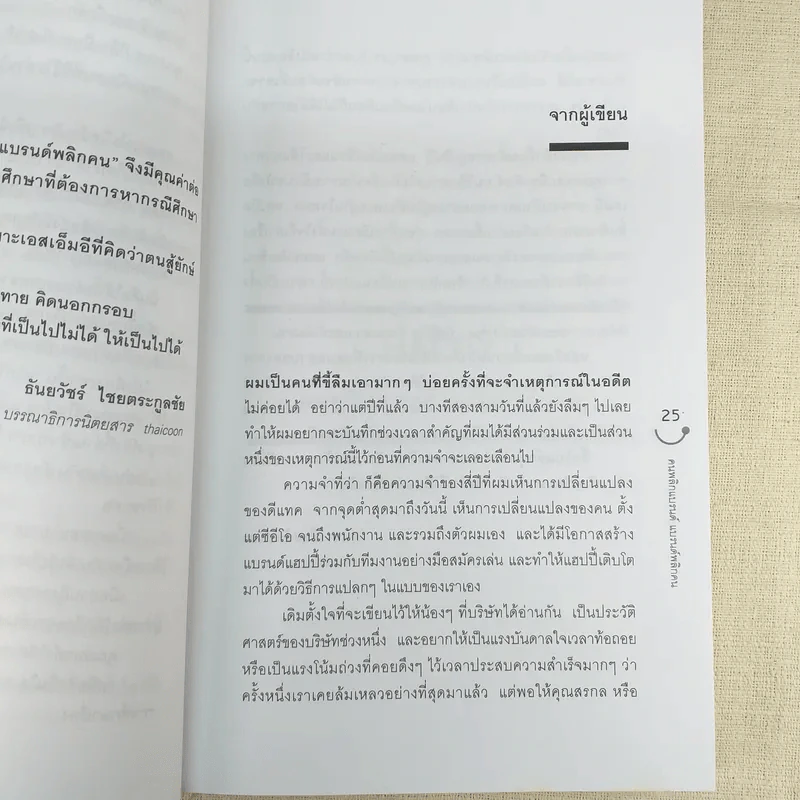 แบรนด์พลิกคน” จึงมีคุณค่าต่อ
ศึกษาที่ต้องการหากรณีศึกษา
าะเอสเอ็มอีที่คิดว่าตนสู้ยักษ์
ทาย คิดนอกกรอบ
ที่เป็นไปไม่ได้ ให้เป็นไปได้
ธันยวัชร์ ไชยตระกูลชัย
บรรณาธิการนิตยสาร thaicoon
จากผู้เขียน
ผมเป็นคนที่ขี้ลืมเอามากๆ บ่อยครั้งที่จะจำเหตุการณ์ในอดีต
ไม่ค่อยได้ อย่าว่าแต่ปีที่แล้ว บางทีสองสามวันที่แล้วยังลืมๆ ไปเลย
ทำให้ผมอยากจะบันทึกช่วงเวลาสำคัญที่ผมได้มีส่วนร่วมและเป็นส่วน
หนึ่งของเหตุการณ์นี้ไว้ก่อนที่ความจำจะเลอะเลือนไป
ความจำที่ว่า ก็คือความจำของสี่ปีที่ผมเห็นการเปลี่ยนแปลง
ของดีแทค จากจุดต่ำสุดมาถึงวันนี้ เห็นการเปลี่ยนแปลงของคน ตั้ง
แต่ซีอีโอ จนถึงพนักงาน และรวมถึงตัวผมเอง และได้มีโอกาสสร้าง
แบรนด์แฮปปี้ร่วมกับทีมงานอย่างมือสมัครเล่น และทำให้แฮปปี้เติบโต
มาได้ด้วยวิธีการแปลกๆ ในแบบของเราเอง
เดิมตั้งใจที่จะเขียนไว้ให้น้องๆ ที่บริษัทได้อ่านกัน เป็นประวัติ
ศาสตร์ของบริษัทช่วงหนึ่ง และอยากให้เป็นแรงบันดาลใจเวลาท้อถอย
หรือเป็นแรงโน้มถ่วงที่คอยดึงๆ ไว้เวลาประสบความสำเร็จมากๆ ว่า
ครั้งหนึ่งเราเคยล้มเหลวอย่างที่สุดมาแล้ว แต่พอให้คุณสรกล หรือ
25
คนพลิกแบรนด์ แบรนด์พลิกคน